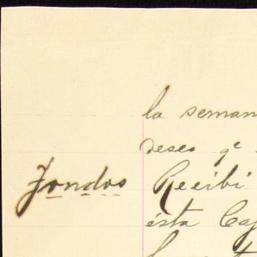 la seman
deseo qe
Fondos Recibi
ésta Caj